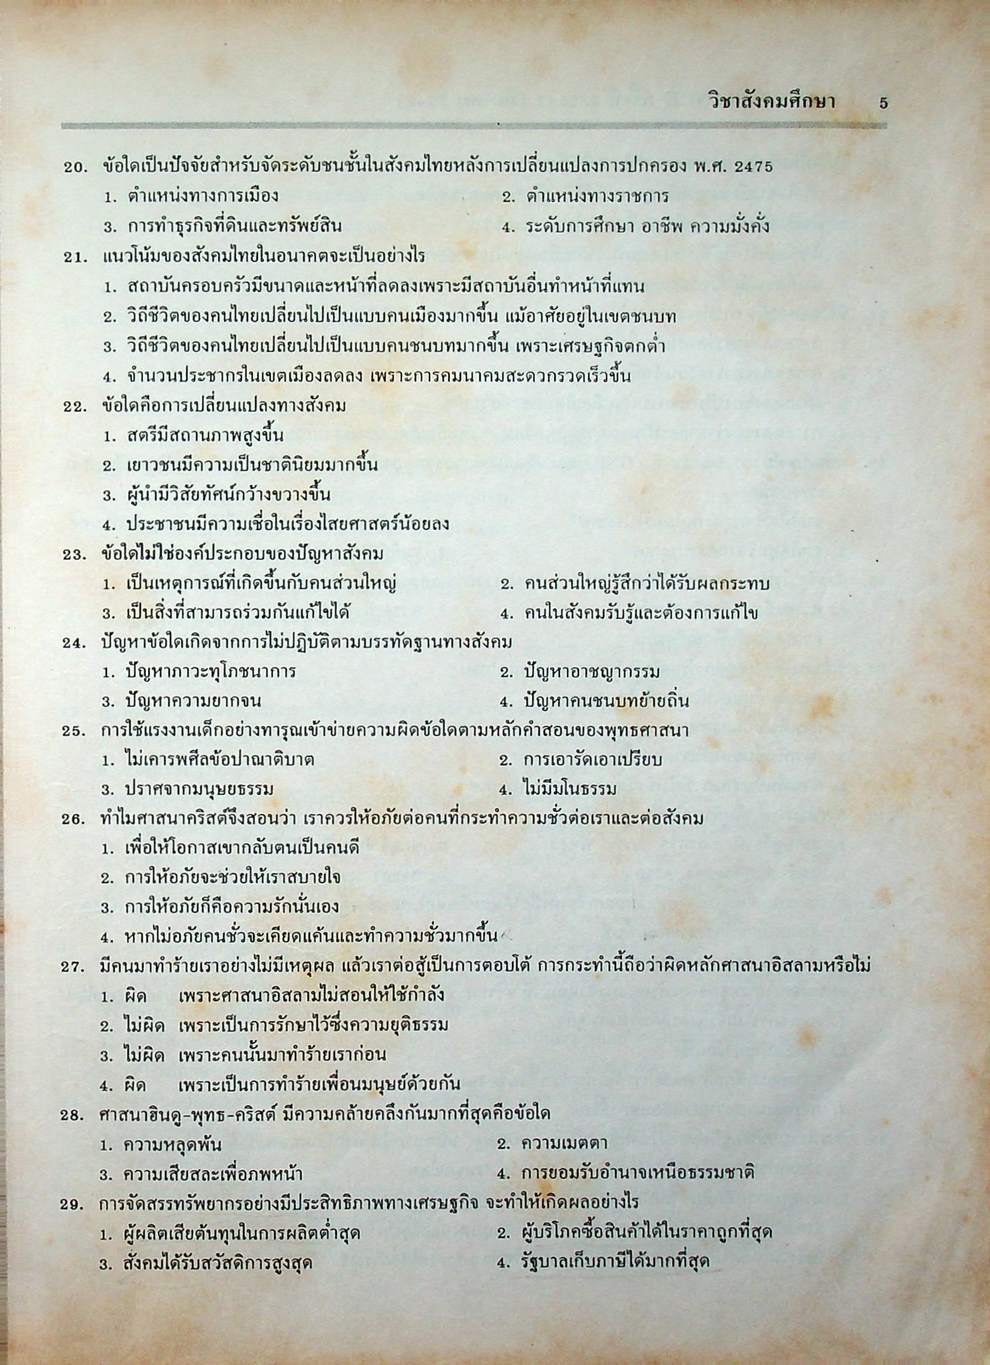 วิชาสังคมศึกษา 5
20. ข้อใดเป็นปัจจัยสำหรับจัดระดับชนชั้นในสังคมไทยหลังการเปลี่ยนแปลงการปกครอง พ.ศ. 2475
1. ตำแหน่งทางการเมือง 2. ตำแหน่งทางราชการ
3. การทำธุรกิจที่ดินและทรัพย์สิน 4. ระดับการศึกษา อาชีพ ความมั่งคั่ง
21. แนวโน้มของสังคมไทยในอนาคตจะเป็นอย่างไร
1. สถาบันครอบครัวมีขนาดและหน้าที่ลดลงเพราะมีสถาบันอื่นทำหน้าที่แทน
2. วิถีชีวิตของคนไทยเปลี่ยนไปเป็นแบบคนเมืองมากขึ้น แม้อาศัยอยู่ในเขตชนบท
3. วิถีชีวิตของคนไทยเปลี่ยนไปเป็นแบบคนชนบทมากขึ้น เพราะเศรษฐกิจตกต่ำ
4. จำนวนประชากรในเขตเมืองลดลง เพราะการคมนาคมสะดวกรวดเร็วขึ้น
22. ข้อใดคือการเปลี่ยนแปลงทางสังคม
1. สตรีมีสถานภาพสูงขึ้น
2. เยาวชนมีความเป็นชาตินิยมมากขึ้น
3. ผู้นำมีวิสัยทัศน์กว้างขวางขึ้น
4. ประชาชนมีความเชื่อในเรื่องไสยศาสตร์น้อยลง
23. ข้อใดไม่ใช่องค์ประกอบของปัญหาสังคม
1. เป็นเหตุการณ์ที่เกิดขึ้นกับคนส่วนใหญ่ 2. คนส่วนใหญ่รู้สึกว่าได้รับผลกระทบ
3. เป็นสิ่งที่สามารถร่วมกันแก้ไขได้ 4. คนในสังคมรับรู้และต้องการแก้ไข
24. ปัญหาข้อใดเกิดจากการไม่ปฏิบัติตามบรรทัดฐานทางสังคม
1. ปัญหาภาวะทุโภชนาการ 2. ปัญหาอาชญากรรม
3. ปัญหาความยากจน 4. ปัญหาคนชนบทย้ายถิ่น
25. การใช้แรงงานเด็กอย่างทารุณเข้าข่ายความผิดข้อใดตามหลักคำสอนของพุทธศาสนา
1. ไม่เคารพศีลข้อปาณาติบาต 2. การเอารัดเอาเปรียบ
3. ปราศจากมนุษยธรรม 4. ไม่มีมโนธรรม
26. ทำไมศาสนาคริสต์จึงสอนว่า เราควรให้อภัยต่อคนที่กระทำความชั่วต่อเราและต่อสังคม
1. เพื่อให้โอกาสเขากลับตนเป็นคนดี
2. การให้อภัยจะช่วยให้เราสบายใจ
3. การให้อภัยก็คือความรักนั่นเอง
4. หากไม่อภัยคนชั่วจะเคียดแค้นและทำความชั่วมากขึ้น
27. มีคนมาทำร้ายเราอย่างไม่มีเหตุผล แล้วเราต่อสู้เป็นการตอบโต้ การกระทำนี้ถือว่าผิดหลักศาสนาอิสลามหรือไม่
1. ผิด เพราะศาสนาอิสลามไม่สอนให้ใช้กำลัง
2. ไม่ผิด เพราะเป็นการรักษาไว้ซึ่งความยุติธรรม
3. ไม่ผิด เพราะคนนั้นมาทำร้ายเราก่อน
4. ผิด เพราะเป็นการทำร้ายเพื่อนมนุษย์ด้วยกัน
28. ศาสนาฮินดู-พุทธ-คริสต์ มีความคล้ายคลึงกันมากที่สุดคือข้อใด
1. ความหลุดพ้น 2. ความเมตตา
3. ความเสียสละเพื่อภพหน้า 4. การยอมรับอำนาจเหนือธรรมชาติ
29. การจัดสรรทรัพยากรอย่างมีประสิทธิภาพทางเศรษฐกิจ จะทำให้เกิดผลอย่างไร
1. ผู้ผลิตเสียต้นทุนในการผลิตต่ำสุด 2. ผู้บริโภคซื้อสินค้าได้ในราคาถูกที่สุด
3. สังคมได้รับสวัสดิการสูงสุด 4. รัฐบาลเก็บภาษีได้มากที่สุด